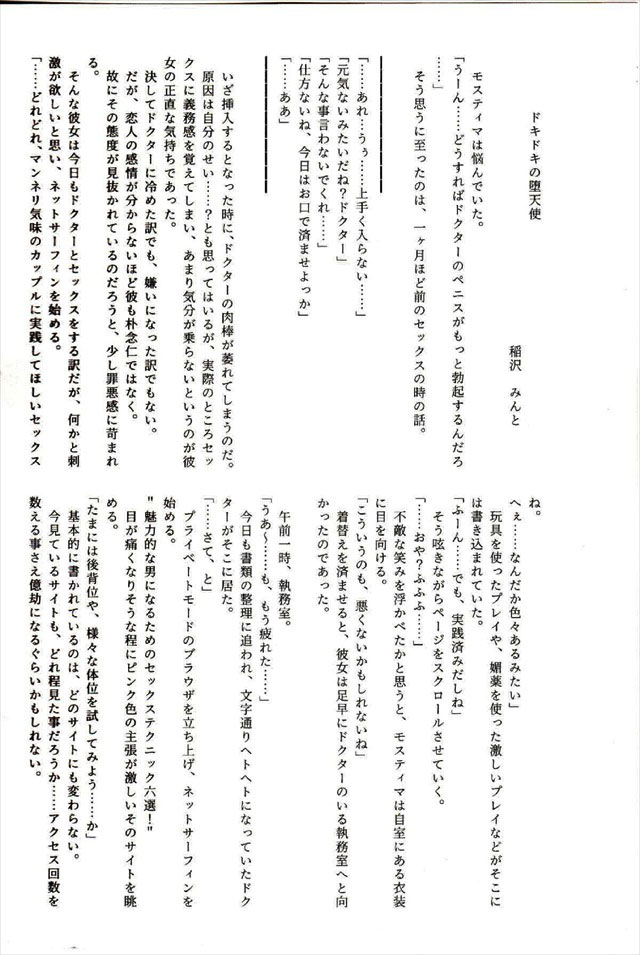 ドキドキの堕天使
稲沢　みんと
モスティマは悩んでいた。
「うーん……どうすればドクターのペニスがもっと勃起するんだろ
……」
そう思うに至ったのは、一ヶ月ほど前のセックスの時の話。
「……あれ…うぅ……上手く入らない……」
「元気ないみたいだね？ドクター」
「そんな事言わないでくれ……」
「仕方ないね、今日はお口で済ませよっか」
「……ああ」
いざ挿入するとなった時に、ドクターの肉棒が萎れてしまうのだ。
原因は自分のせい……？とも思ってはいるが、実際のところセッ
クスに義務感を覚えてしまい、あまり気分が乗らないというのが彼
女の正直な気持ちであった。
決してドクターに冷めた訳でも、嫌いになった訳でもない。
だが、恋人の感情が分からないほど彼も朴念仁ではなく。
故にその態度が見抜かれているのだろうと、少し罪悪感に苛まれ
る。
そんな彼女は今日もドクターとセックスをする訳だが、何かと刺
激が欲しいと思い、ネットサーフィンを始める。
「……どれどれ、マンネリ気味のカップルに実践してほしいセックス
ね。
へぇ……なんだか色々あるみたい」
玩具を使ったプレイや、媚薬を使った激しいプレイなどがそこに
は書き込まれていた。
「ふーん……でも、実践済みだしね」
そう呟きながらページをスクロールさせていく。
「……おや？ふふふ……」
不敵な笑みを浮かべたかと思うと、モスティマは自室にある衣装
に目を向ける。
「こういうのも、悪くないかもしれないね」
着替えを済ませると、彼女は足早にドクターのいる執務室へと向
かったのであった。
午前一時、執務室。
「うあ～……も、もう疲れた……」
今日も書類の整理に追われ、文字通りヘトヘトになっていたドク
ターがそこに居た。
「……さて、と」
プライベートモードのブラウザを立ち上げ、ネットサーフィンを
始める。
"魅力的な男になるためのセックステクニック六選！"
目が痛くなりそうな程にピンク色の主張が激しいそのサイトを眺
める。
「たまには後背位や、様々な体位を試してみよう……か」
基本的に書かれているのは、どのサイトにも変わらない。
今見ているサイトも、どれ程見た事だろうか……アクセス回数を
数える事さえ億劫になるぐらいかもしれない。